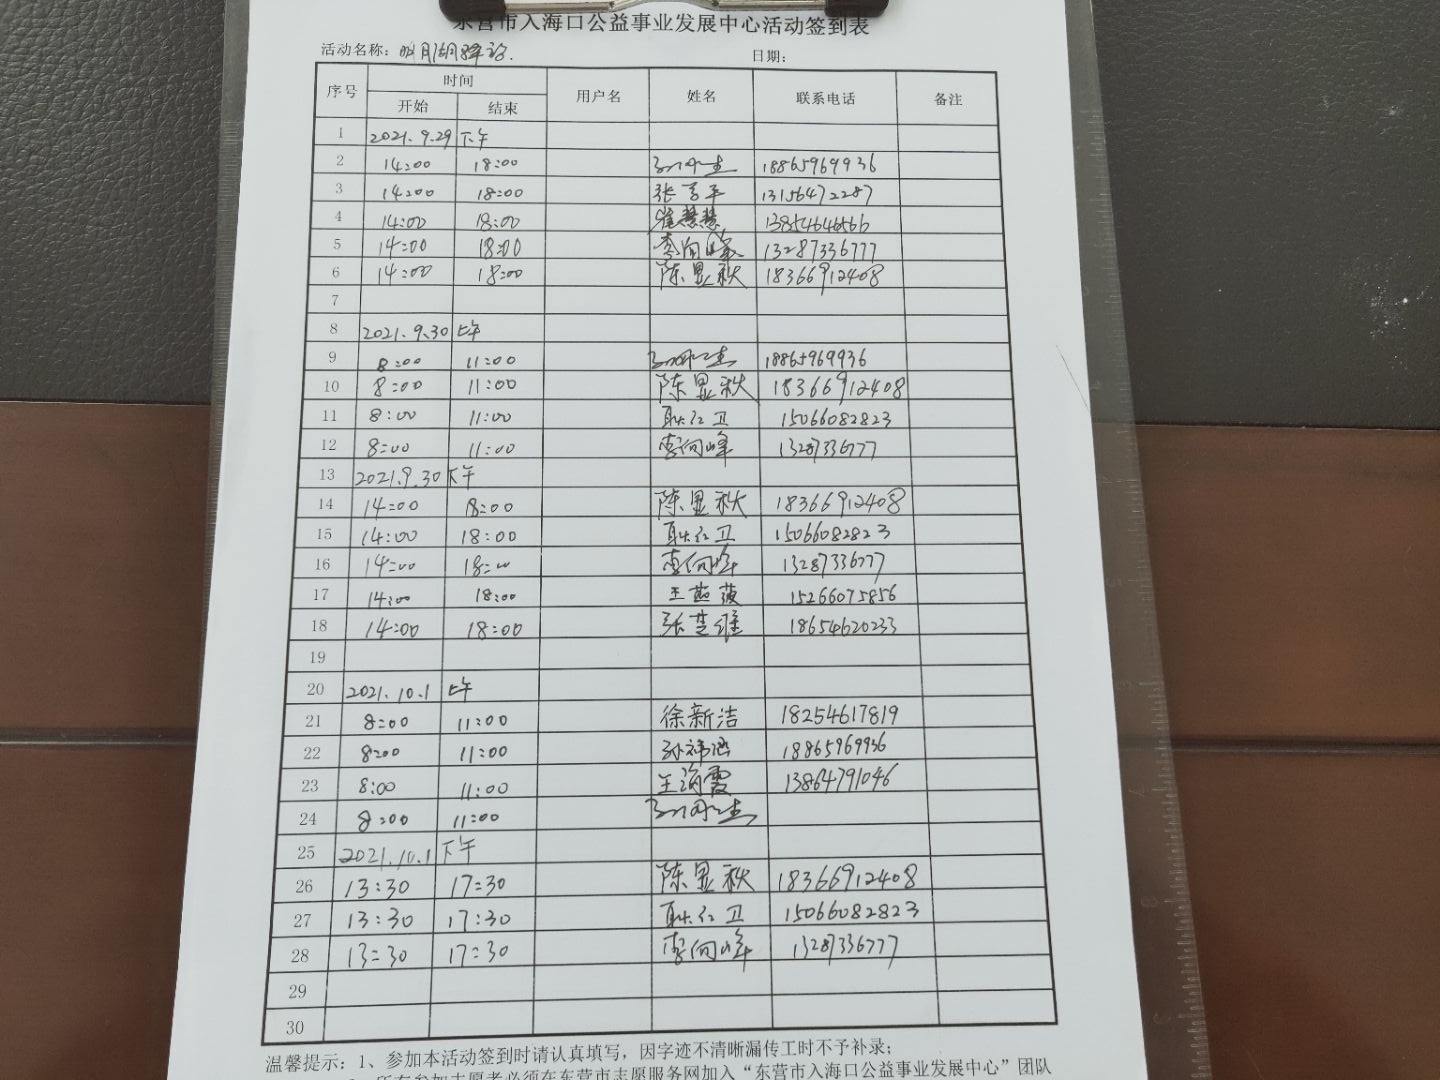 东营市入海口公益事业发展中心活动签到表
活动名称: 明月湖 日期:
序号 时间 用户名 姓名 联系电话 备注
开始 结束
1 2021.9.29 下午
2 14:00 18:00 18865969936
3 14:00 18:00 张 平 13156472287
4 14:00 18:00 崔慧慧 13854646566
5 14:00 18:00 李向峰 13287336777
6 14:00 18:00 陈显秋 18366912408
7
8 2021.9.30 上午
9 8:00 11:00 18865969936
10 8:00 11:00 陈显秋 18366912408
11 8:00 11:00 耿红卫 15066082823
12 8:00 11:00 李向峰 13287336777
13 2021.9.30 下午
14 14:00 18:00 陈显秋 18366912408
15 14:00 18:00 耿红卫 15066082823
16 14:00 18:00 李向峰 13287336777
17 14:00 18:00 王 15266075856
18 14:00 18:00 张 18654620233
19
20 2021.10.1 上午
21 8:00 11:00 徐新洁 18254617819
22 8:00 11:00 孙 涵 18865969936
23 8:00 11:00 王海霞 13864791046
24 8:00 11:00
25 2021.10.1 下午
26 13:30 17:30 陈显秋 18366912408
27 13:30 17:30 耿红卫 15066082823
28 13:30 17:30 李向峰 13287336777
29
30
温馨提示: 1、参加本活动签到时请认真填写，因字迹不清晰漏传工时不予补录;
所有参加志愿者必须在东营市志愿服务网加入“东营市入海口公益事业发展中心”团队